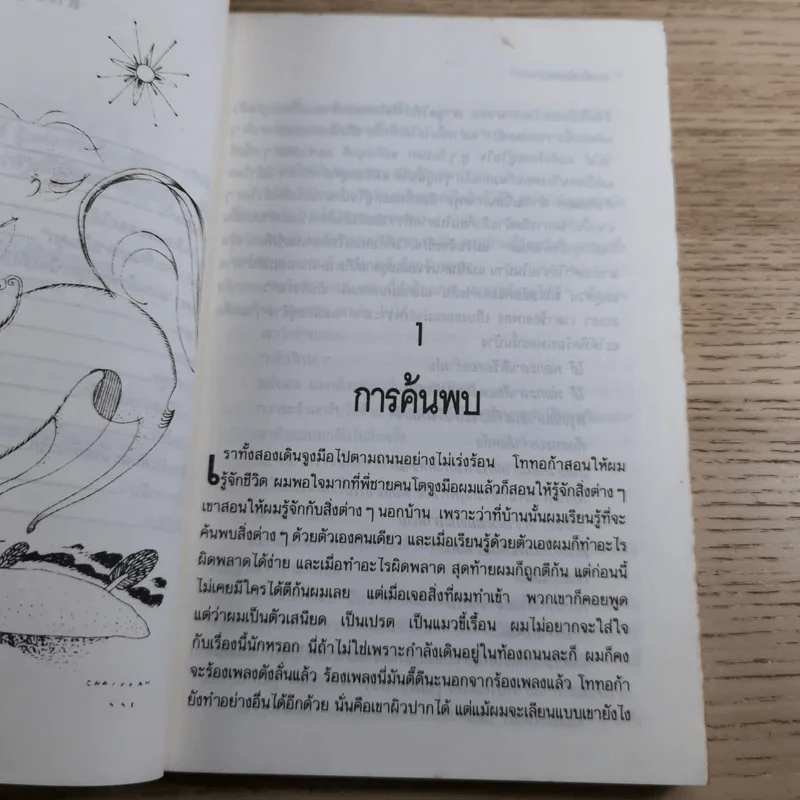 1
การค้นพบ
เราทั้งสองเดินจูงมือไปตามถนนอย่างไม่เร่งร้อน โททอก้าสอนให้ผม
รู้จักชีวิต ผมพอใจมากที่พี่ชายคนโตจูงมือผมแล้วก็สอนให้รู้จักสิ่งต่าง ๆ
เขาสอนให้ผมรู้จักกับสิ่งต่าง ๆ นอกบ้าน เพราะว่าที่บ้านนั้นผมเรียนรู้ที่จะ
ค้นพบสิ่งต่าง ๆ ด้วยตัวเองคนเดียว และเมื่อเรียนรู้ด้วยตัวเองผมก็ทำอะไร
ผิดพลาดได้ง่าย และเมื่อทำอะไรผิดพลาด สุดท้ายผมก็ถูกตีก้น แต่ก่อนนี้
ไม่เคยมีใครได้ตีก้นผมเลย แต่เมื่อเจอสิ่งที่ผมทำเข้า พวกเขาก็คอยพูด
แต่ว่าผมเป็นตัวเสนียด เป็นเปรต เป็นแมวขี้เรื้อน ผมไม่อยากจะใส่ใจ
กับเรื่องนี้นักหรอก นี่ถ้าไม่ใช่เพราะกำลังเดินอยู่ในท้องถนนละก็ ผมก็คง
จะร้องเพลงดังลั่นแล้ว ร้องเพลงนี่มันดี๊ดีนะนอกจากร้องเพลงแล้ว โททอก้า
ยังทำอย่างอื่นได้อีกด้วย นั่นคือเขาผิวปากได้ แต่แม้ผมจะเลียนแบบเขายังไง